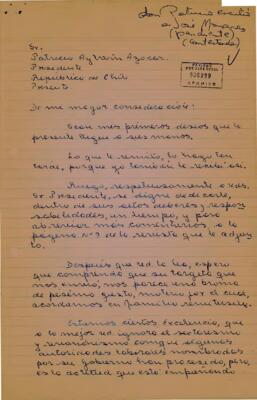 don Patricio
a José
(pendiente)
(contestada)
ARCHIVO
Sr.
Patricio Aylwin Azócar.
Presidente
República de Chile
Presente
De mi mayor consideración:
Sean mis primeros deseos que la
presente llegue a sus manos.
Lo que le remito, lo hago tan
tarde, porque yo también lo recibí así.
Ruego, respetuosamente a Uds.
Sr. Presidente, se digne dedicarle,
dentro de sus altos deberes y respon
sabilidades, un tiempo, y poso
abremos mas comentarios a la
pagina Nº 9 de la revista que le adjun
to.
Después que Ud. lo lea, espero
que comprenda que su tarjeta que
nos envió, nos pareció una broma
de pésimo gusto, motivo por el cual,
acordamos en familia remitírsela.
Estamos ciertos Excelencia, que
a lo mejor Ud. ignora el
y con que algunas
autoridades nombradas
por su Gobierno han procedido, pero,
esa actitud que está empañando